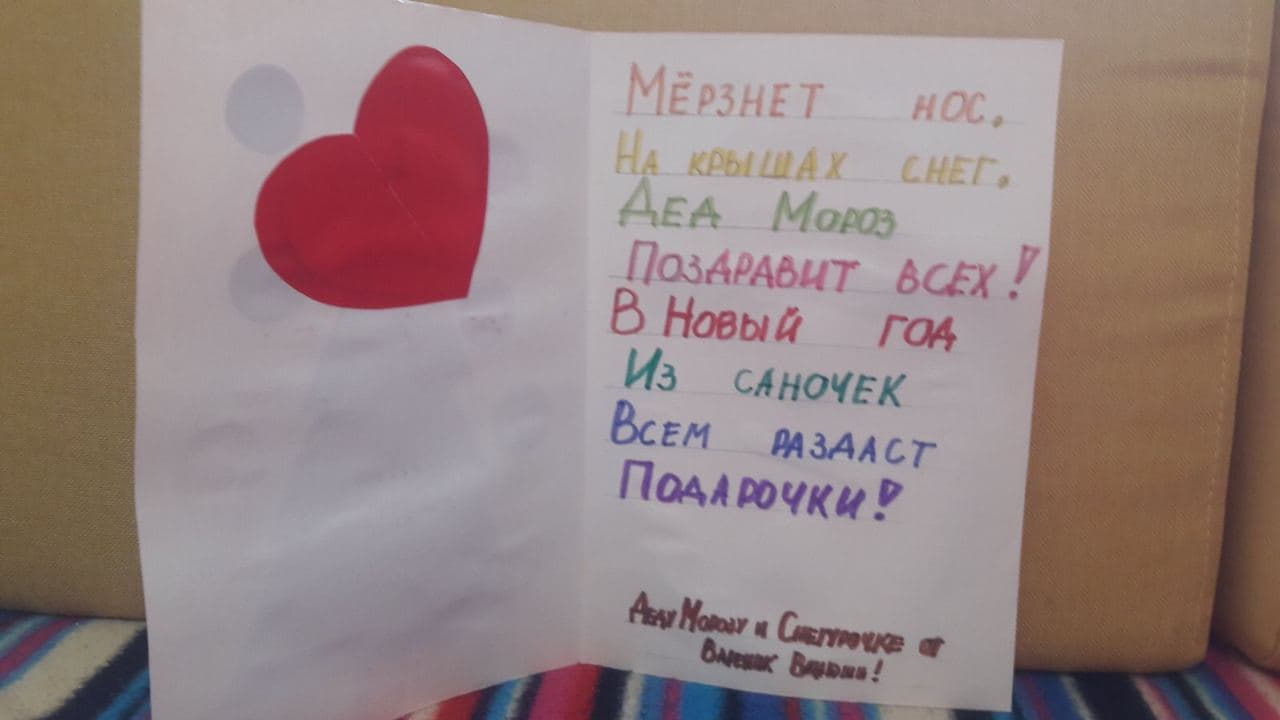 Мёрзнет нос.
На крышах снег.
Дед Мороз
Поздравит всех!
В Новый год
Из саночек
Всем раздаст
Подарочки!
Деду Морозу и Снегурочке от